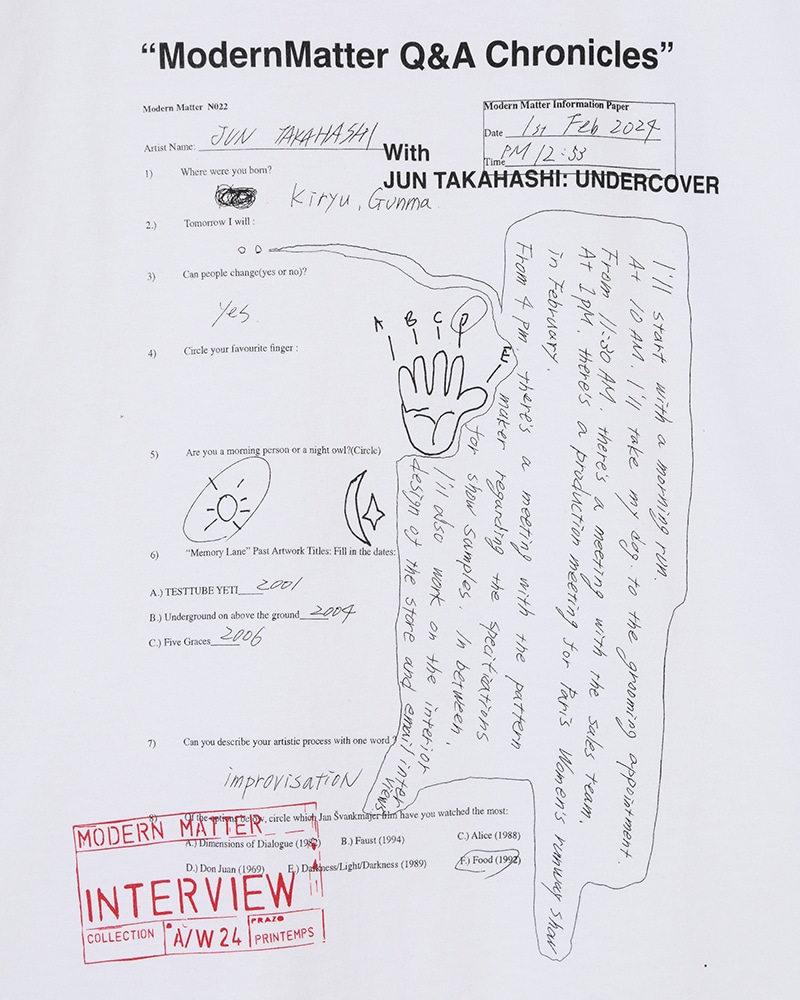 “ModernMatter Q&A Chronicles”
Modern Matter N022
Modern Matter Information Paper
Date 1st Feb 2024
Time PM 12:53
Artist Name: JUN TAKAHASHI
With
JUN TAKAHASHI: UNDERCOVER
1) Where were you born?
Kiryu, Gunma
2.) Tomorrow I will :
I'll start with a morning run.
At 10 AM. I'll take my dog to the grooming appointment.
From 11:30 AM. there's a meeting with the sales team
At 1PM. there's a production meeting for Paris Women's runway show
in February.
From 4 pm, there's a meeting with the pattern
maker regarding the specifications
for show samples. In between,
I'll also work on the interior
design of the store and email inter
views
3) Can people change(yes or no)?
Yes
4) Circle your favourite finger :
A B C D E
5) Are you a morning person or a night owl?(Circle)
6) “Memory Lane” Past Artwork Titles: Fill in the dates:
A.) TESTTUBE YETI 2001
B.) Underground on above the ground 2004
C.) Five Graces 2006
7) Can you describe your artistic process with one word ?
improvisation
8) Of the options below, circle which Jan Švankmajer film have you watched the most:
A.) Dimensions of Dialogue (1982) B.) Faust (1994) C.) Alice (1988)
D.) Don Juan (1969) E.) Darkness/Light/Darkness (1989) F.) Food (1992)
MODERN MATTER
INTERVIEW
COLLECTION A/W 24 PRAZO PRINTEMPS